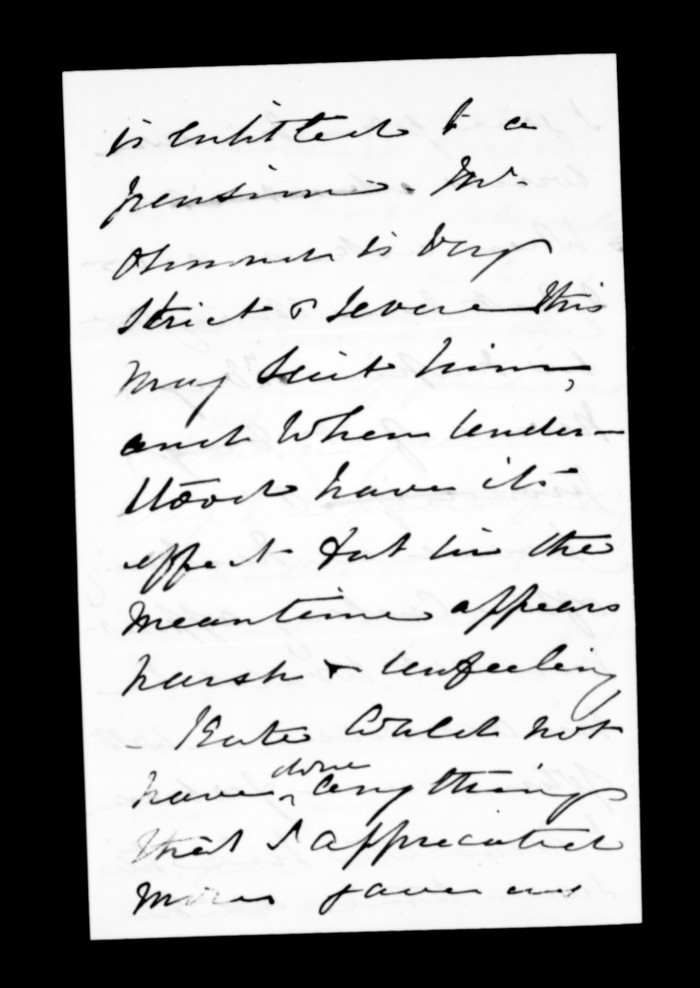 is entitled to a
pension. Mr.
Ormond is very
Strict & severe this
may suit him,
and when under-
stood have its
effect but in the
meantime appears
harsh & unfeeling
Kate could not
have done anything
that I appreciated
more &